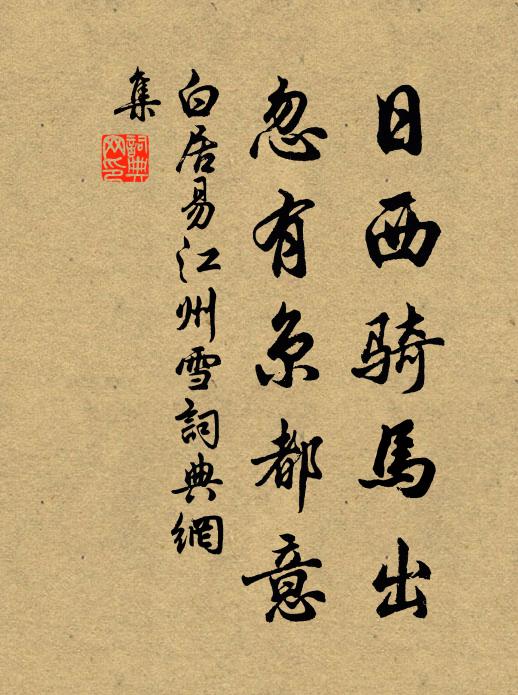 日西骑馬出
忽有京都意
白居易江州雪詞典網
集
詞典網印